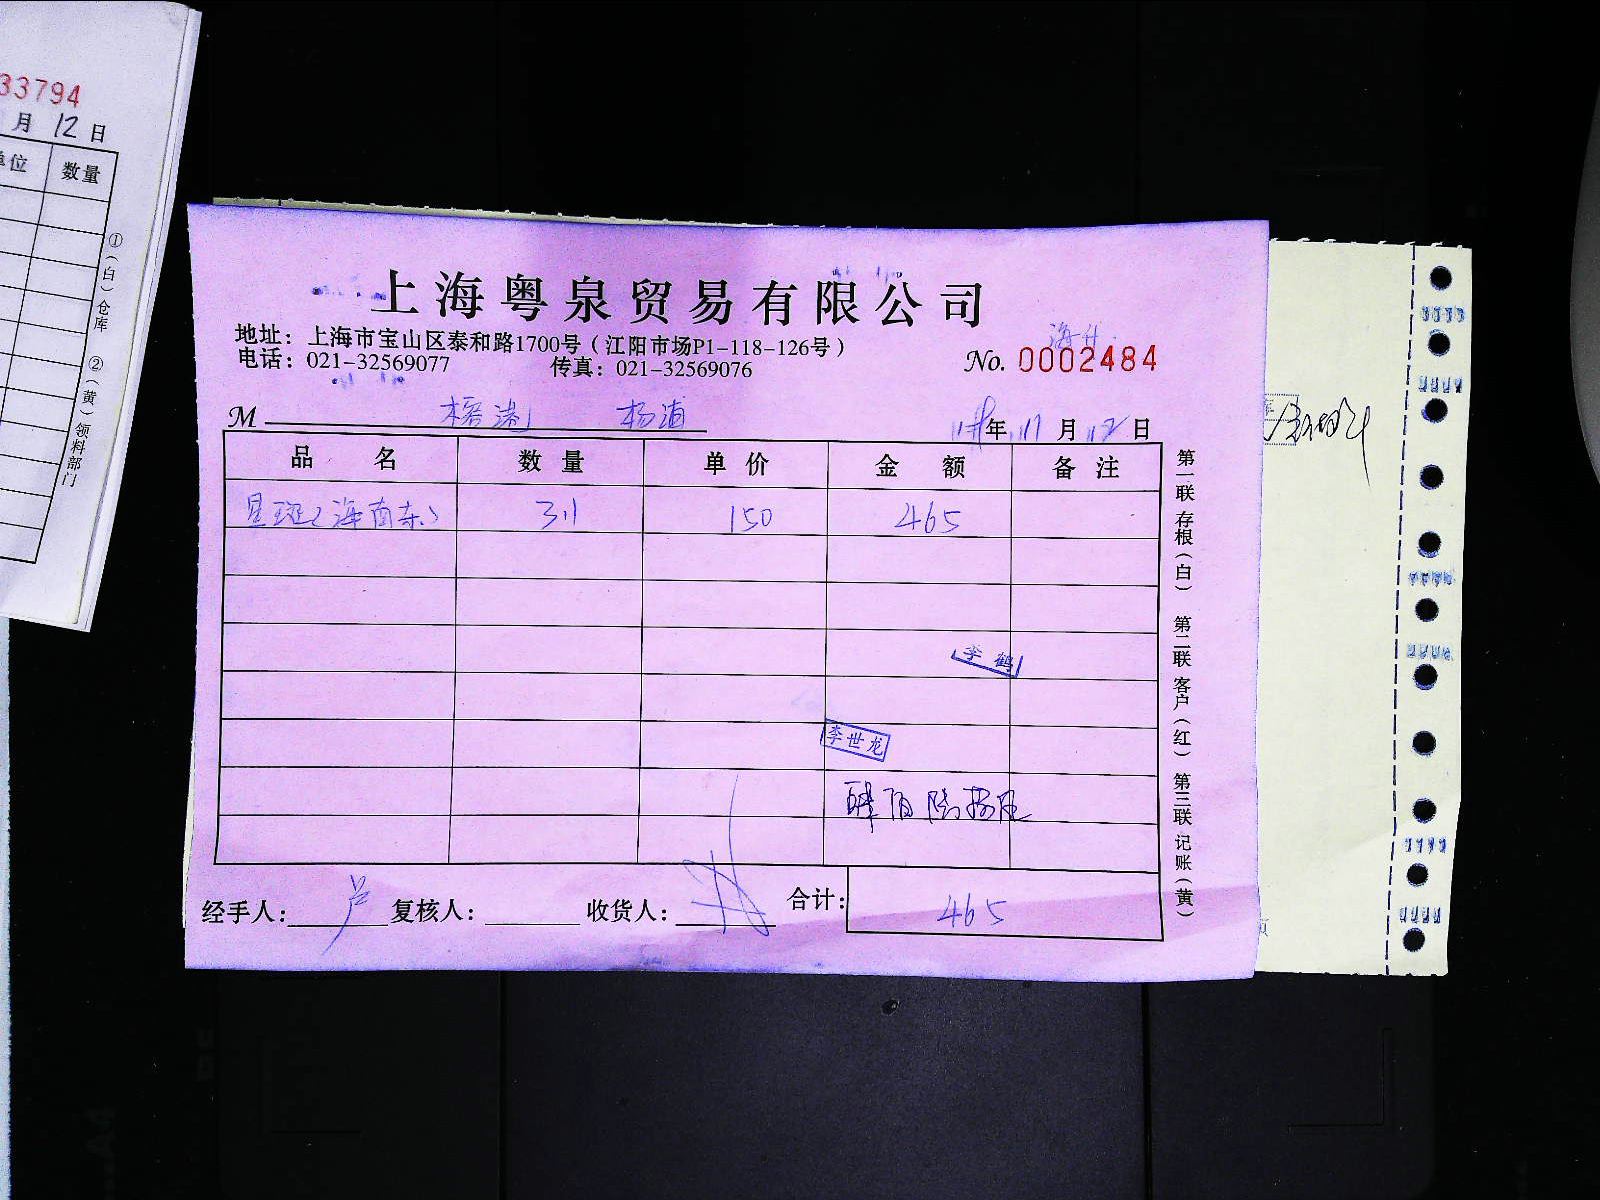 33794
月 12 日
单位 数量
①(白)仓库 ②(黄)领料部门
上海粤泉贸易有限公司
地址：上海市宝山区泰和路1700号（江阳市场P1-118-126号）
电话：021-32569077 传真：021-32569076
No. 0002484
M 榕港 杨浦
年 11 月 12 日
品名 数量 单价 金额 备注
星斑(海南东) 3.1 150 465
李鹤
李世龙
肆佰陆拾伍
经手人：卢 复核人： 收货人： 合计：465
第一联 存根(白) 第二联 客户(红) 第三联 记账(黄)